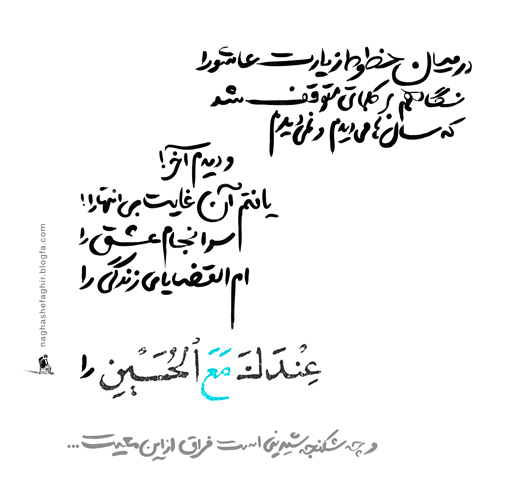 در میان خطوط از زیارت عاشورا
نگاهم بر کلماتی متوقف شد
که سال‌ها می‌دیدم و نمی‌دیدم
و دیدم آخر!
یافتم آن غایت بی‌انتها را!
سرانجام عشق را
ام القضایای زندگی را
عِنْدَكَ مَعَ ٱلْحُسَيْنِ را
و چه شکنجه شیرینی است فراق از این معیت...
naghashefaghir.blogfa.com